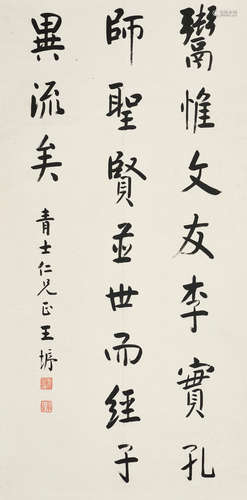 鬻惟文友李實孔
師聖賢並世而經子
異流矣
青士仁兄正 王塀